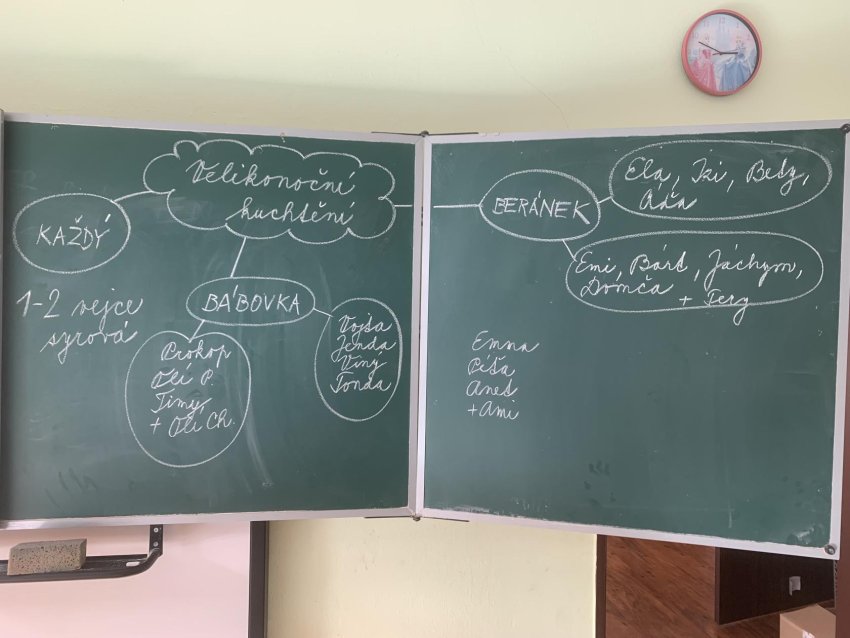 Velikonoční
kuchtění
KAŽDÝ
1-2 vejce
syrová
BÁBOVKA
Prokop
Oli P.
Timy,
+ Oli Ch.
Vojša
Jenda
Viny
Tonda
BERÁNEK
Ela, Izi, Bedy,
Áďa
Emi, Bárt, Jáchym,
Domča
+ Tery
Emna
Píša
Anet
+ Ami